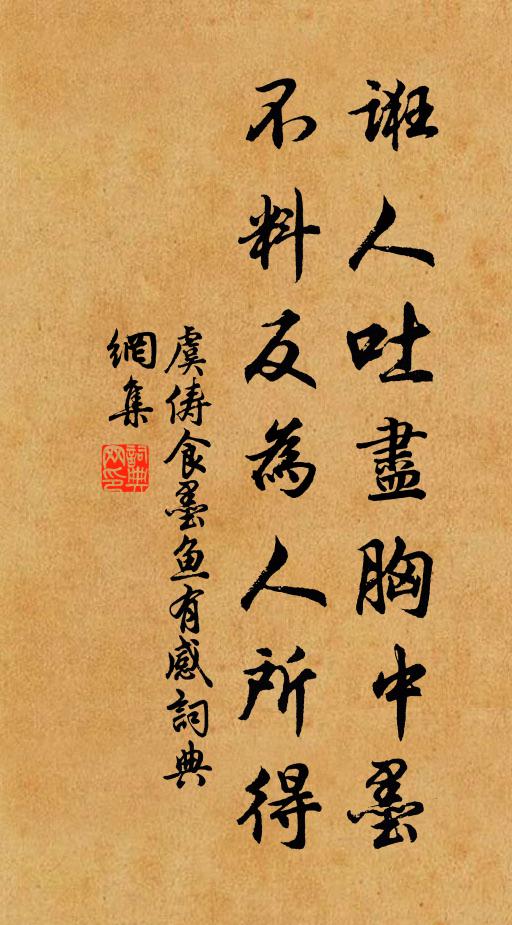 誑人吐盡胸中墨
不料反為人所得
虞儔食墨魚有感詞典
網集
詞典
网印